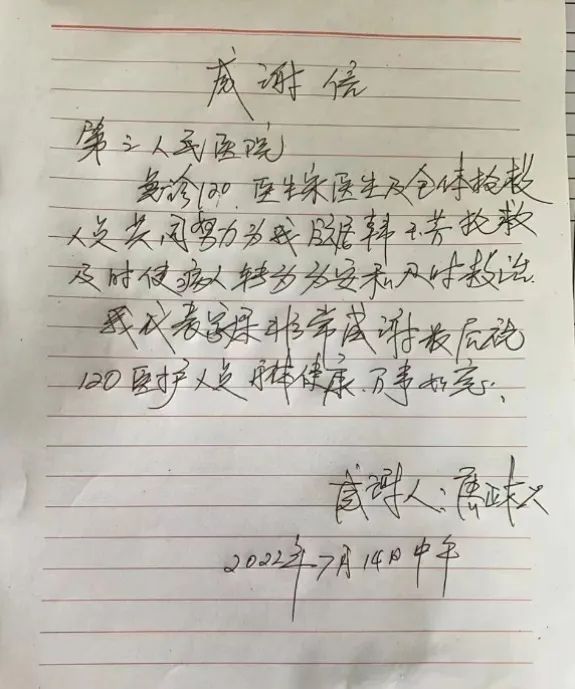 感谢信
第二人民医院
急诊120 医生宋医生及全体抢救
人员共同努力为我 韩玉芳抢救
及时使病人转危为安和及时救治.
我代表家属非常感谢最后祝
120医护人员身体健康.万事如意.
感谢人:
2022年7月14日中午